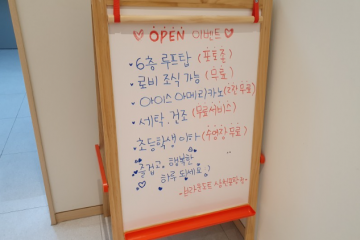 ♡ OPEN 이벤트 ♡
• 6층 루프탑 (포토존)
• 로비 조식 가능 (무료)
• 아이스 아메리카노 (2잔 무료)
• 세탁, 건조 (무료서비스)
• 초등학생 이하 (수영장 무료)
즐겁고, 행복한
♡ 하루 되세요♪